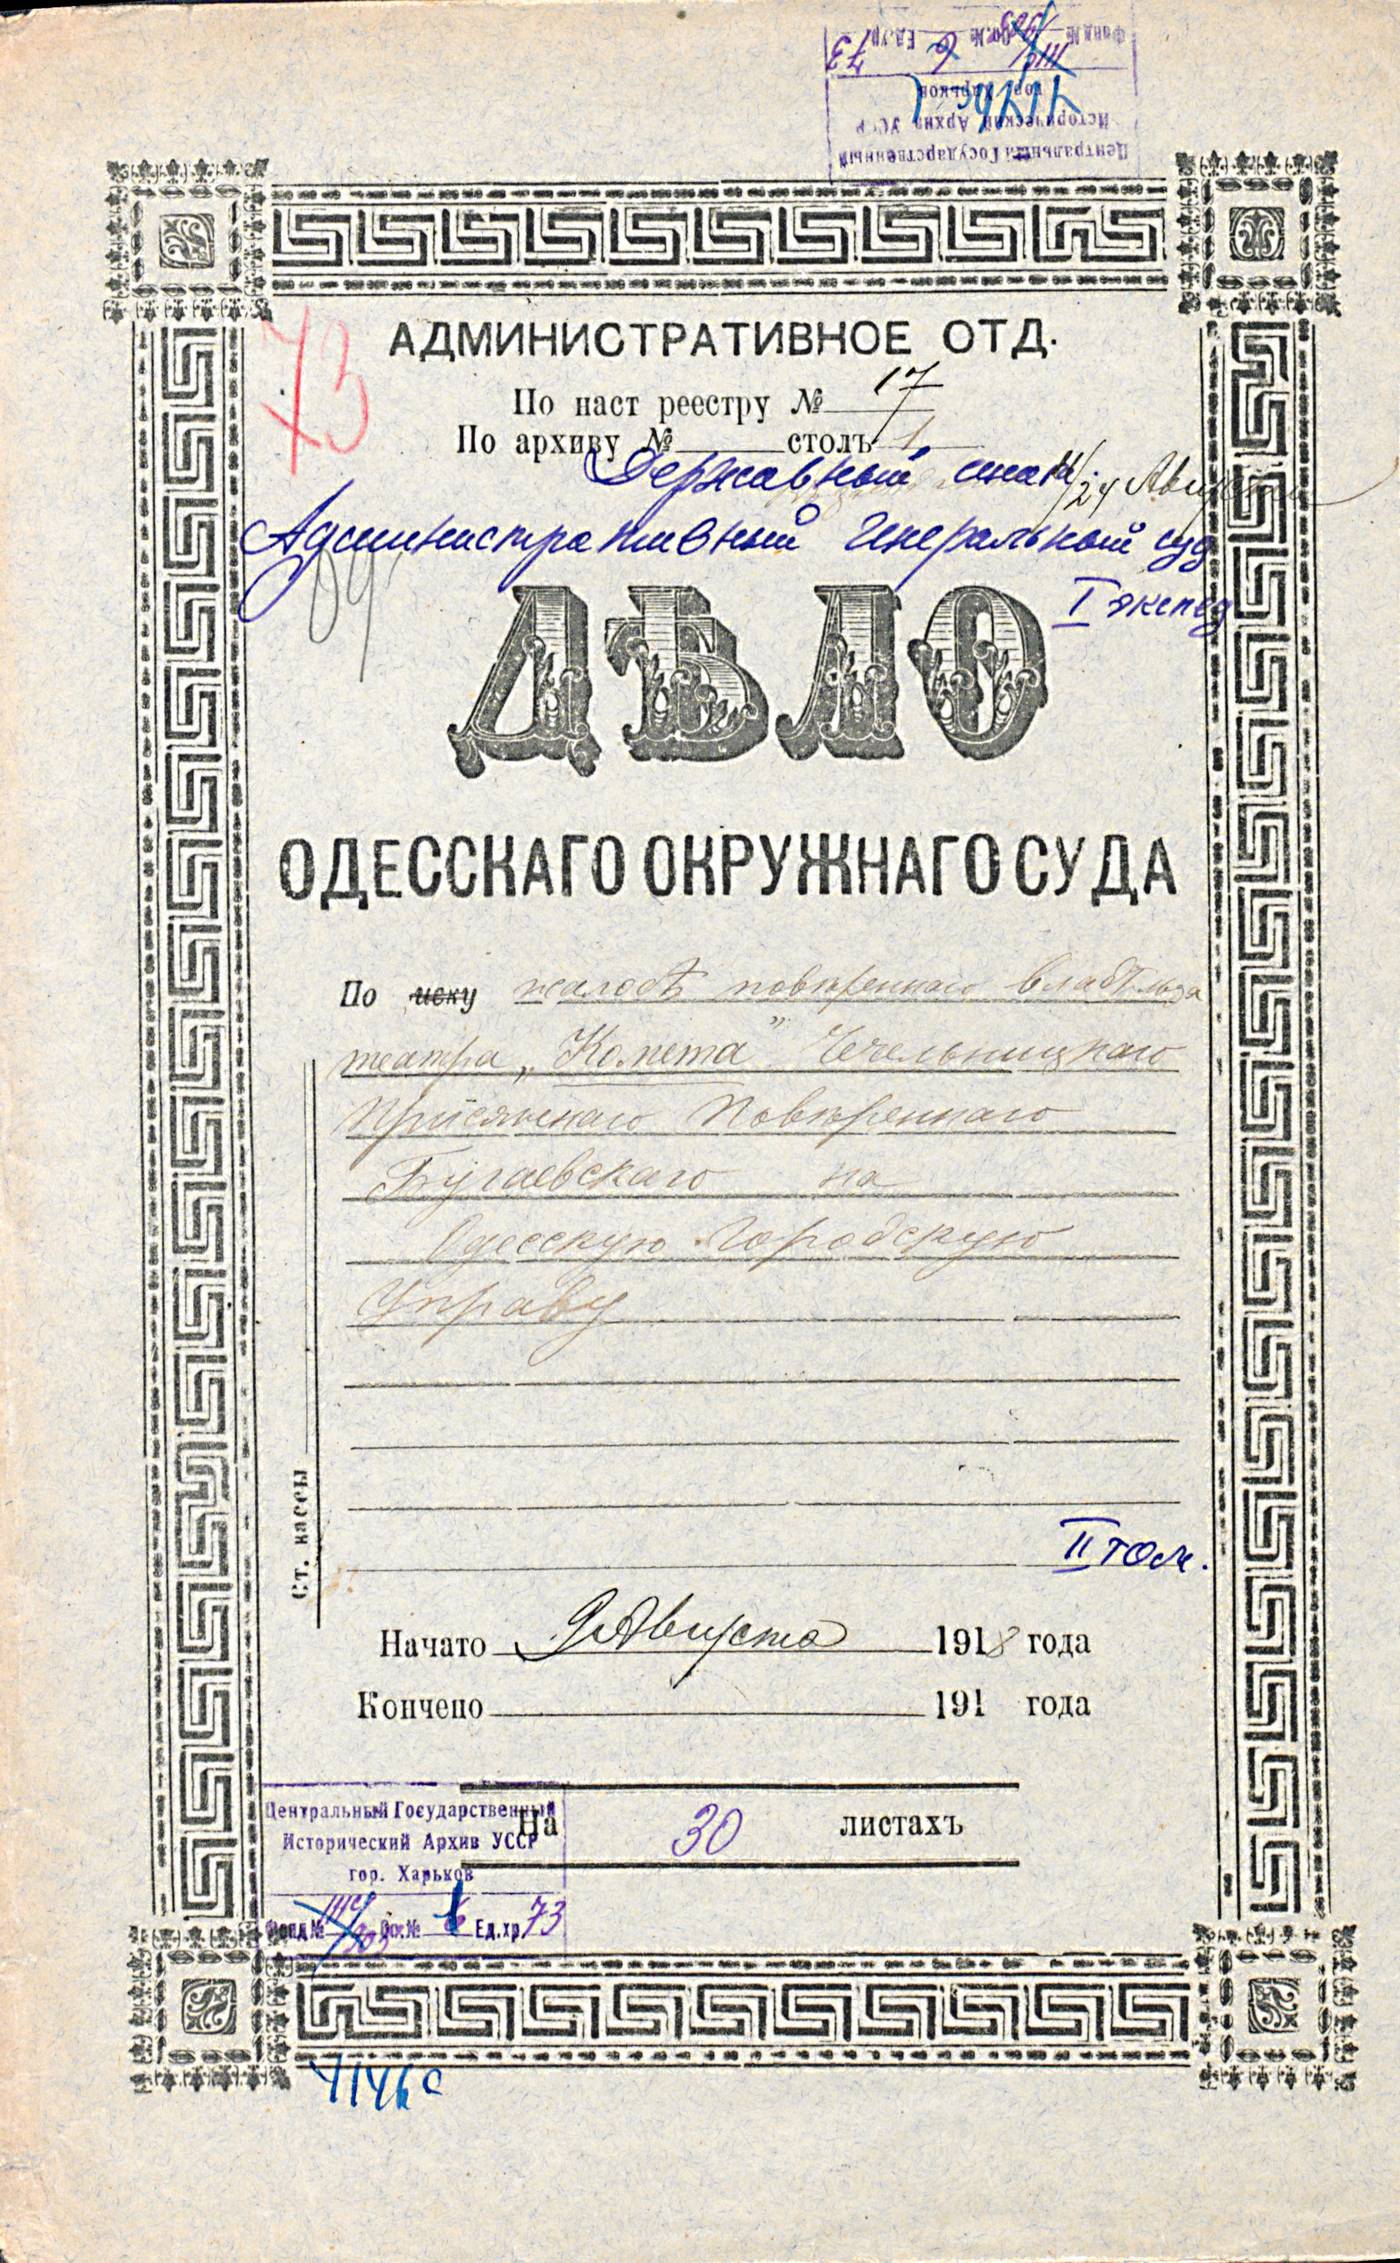 Центральный Государственный
Исторический Архив УССР
гор. Харьков
Фонд № Оп. № 6 Ед.хр. 73
73
АДМИНИСТРАТИВНОЕ ОТД.
По наст реестру № 17
По архиву № столъ 1
Державный сенат
11/24 Августа
Административный Генеральный суд
I экспед
ДѢЛО
ОДЕССКАГО ОКРУЖНАГО СУДА
По иску жалобѣ повѣреннаго владѣльца
театра „Комета" Чечельницкаго
Присяжнаго Повѣреннаго
Бугаевскаго на
Одесскую Городскую
Управу
Ст. кассы
II том.
Начато 9 Августа 1918 года
Кончено 191 года
На 30 листахъ
Центральный Государственный
Исторический Архив УССР
гор. Харьков
Фонд № Оп. № Ед.хр. 73